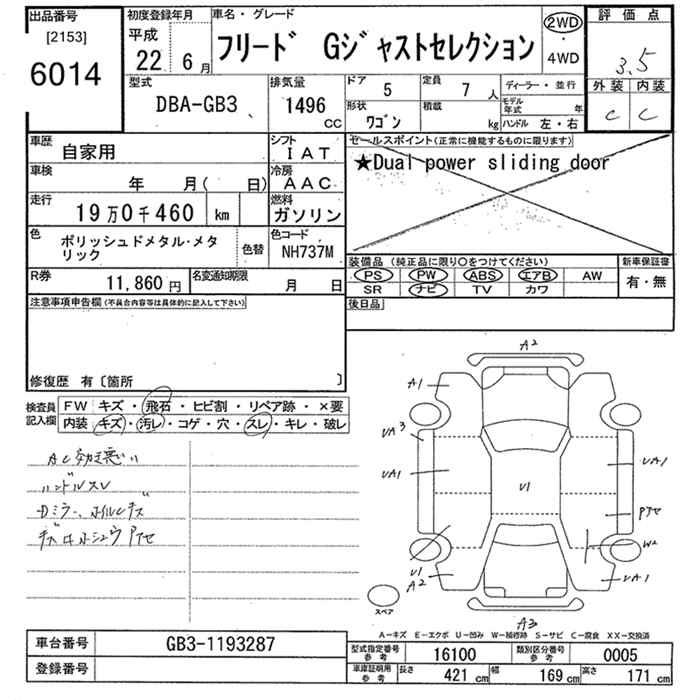 出品番号 初度登録年月 車名・グレード 評価点
[2153] 平成 フリード Gジャストセレクション 2WD
6014 22年 6月 ・4WD 3.5
型式 排気量 ドア 5 定員 7人 ディーラー・並行 外装 内装
DBA-GB3 1496cc 形状 ワゴン 積載 kg モデル年式 年 C C
ハンドル 左・右
車歴 自家用 シフト IAT セールスポイント(正常に機能するものに限ります)
車検 年 月( 日) 冷房 AAC ★Dual power sliding door
走行 19万0千460 km 燃料 ガソリン
色 ポリッシュドメタル・メタ 色替 色コード
リック NH737M
装備品(純正品に限り○をつけてください) 新車保証書
R券 11,860円 名変通知期限 月 日 PS PW ABS エアB AW 有・無
SR ナビ TV カワ
注意事項申告欄(不具合内容等は具体的に記入して下さい) 後日品
修復歴 有〔箇所 〕
検査員 FW キズ・飛石・ヒビ割・リペア跡・×要
記入欄 内装 キズ・汚レ・コゲ・穴・スレ・キレ・破レ
AC効き悪い
ハンドルスレ
Dミラー、ホイルキズ
A2
A1
UA3
UA1 UA1
U1
Pアセ
W2
U1
A2 UA1
スペア
A3
A−キズ E−エクボ U−凹み W−補修跡 S−サビ C−腐食 XX−交換済
車台番号 GB3-1193287
登録番号
型式指定番号参考 16100 類別区分番号参考 0005
車庫証明用参考 長さ 421cm 幅 169cm 高さ 171cm